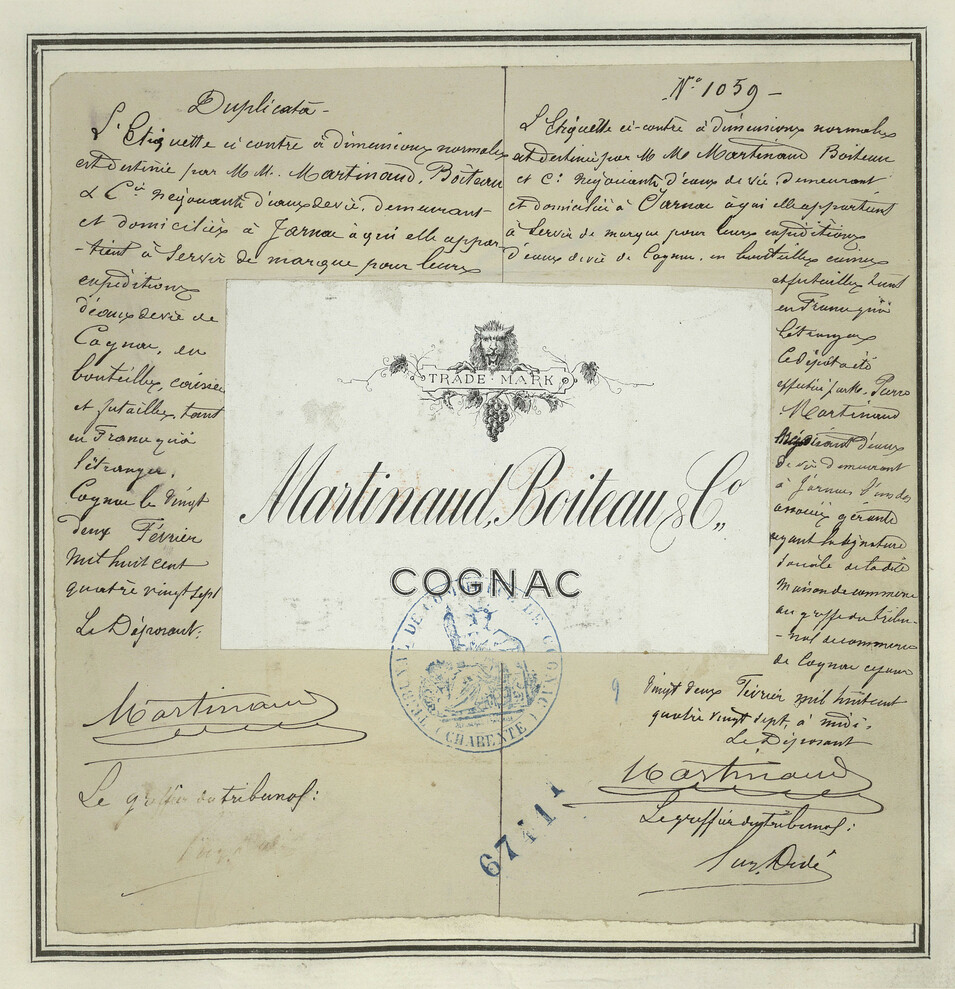 Duplicata -
L'Etiquette ci contre à dimensions normales
est destinée par M M. Martinaud, Boiteau
& Cie négociants d'eaux de vie, demeurant
et domiciliés à Jarnac à qui elle appar
-tient à servir de marque pour leurs
expéditions
d'eaux de vie de
Cognac, en
bouteilles, caisses
et futailles, tant
en France qu'à
l'étranger.
Cognac le vingt
deux Février
mil huit cent
quatre vingt sept
Le Déposant:
Martinaud
Le greffier du tribunal:
N° 1059 -
L'Etiquette ci-contre à dimensions normales
est destinée par M M Martinaud Boiteau
et Cie négociants d'eaux de vie, demeurant
et domiciliés à Jarnac à qui elle appartient
à servir de marque pour leurs expéditions
d'eaux de vie de Cognac, en bouteilles caisses
et futailles tant
en France qu'à
l'étranger
Ce dépôt a été
effectué par M. Pierre
Martinaud
négociant d'eaux
de vie demeurant
à Jarnac l'un des
associés gérants
ayant la signature
sociale de la dite
maison de commerce
au greffe du tribu-
-nal de commerce
de Cognac ce jour
vingt deux Février mil huit cent
quatre vingt sept, à midi.
Le Déposant
Martinaud
Le greffier du tribunal:
TRADE-MARK
Martinaud, Boiteau & Co,,
COGNAC
TRIBUNAL DE COMMERCE DE COGNAC
(CHARENTE)
9